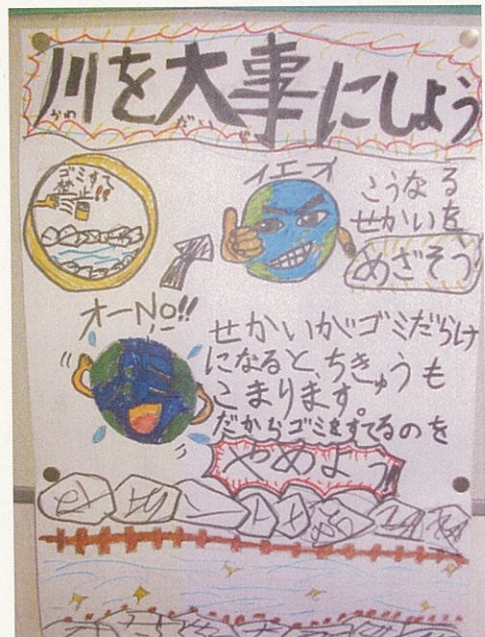 川を大事にしよう
かわ だい じ
ゴミすて
禁止!!
イエイ
こうなる
せかいを
めざそう
オーNo!!
せかいがゴミだらけ
になると、ちきゅうも
こまります。
だからゴミをすてるのを
やめよう